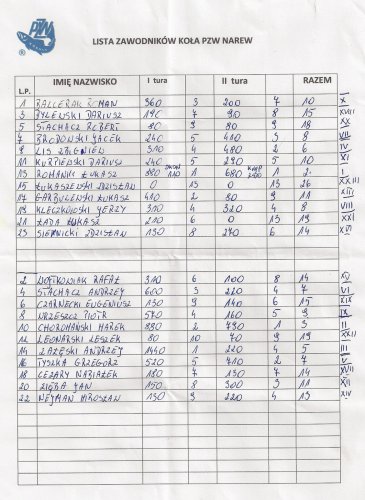 PZW
®
LISTA ZAWODNIKÓW KOŁA PZW NAREW
L.P. IMIĘ NAZWISKO I tura II tura RAZEM
1 BALCERAK ROMAN 360 3 200 7 10 X
3 DYLEŃSKI DARIUSZ 190 7 90 8 15 XVII
5 STACHACZ ROBERT 80 9 80 9 18 XX
7 BRODOWSKI JACEK 240 5 410 3 8 VII
9 LIS ZBIGNIEW 310 4 480 2 6 IV
11 KURPIEWSKI DARIUSZ 240 5 290 5 10 XI
13 ROMANIK ŁUKASZ 880 1 680 1 2 I
15 ŁUKASZEWSKI ZDZISŁAW 0 13 0 13 26 XXIII
17 GARBULEWSKI ŁUKASZ 410 2 80 9 11 XIII
19 KLECZKOWSKI JERZY 310 4 320 4 8 VIII
21 ŁADA ŁUKASZ 210 6 0 13 19 XXI
23 SIERNICKI ZDZISŁAW 130 8 240 6 14 XVI
2 WOJTKOWIAK RAFAŁ 310 6 100 8 14 XV
4 STACHACZ ANDRZEJ 600 3 220 4 7 VI
6 CZARNECKI EUGENIUSZ 130 9 140 6 15 XIX
8 WRZESZCZ PIOTR 540 4 160 5 9 IX
10 CHOROMAŃSKI MAREK 880 2 430 1 3 II
12 LEONARSKI LESZEK 80 10 70 9 19 XXII
14 ZAŁĘSKI ANDRZEJ 1440 1 220 4 5 III
16 TYSZKA GRZEGORZ 520 5 410 2 7 V
18 CEZARY NABIAŁEK 180 7 130 7 14 XVII
20 ZIĘBA JAN 150 8 300 3 11 XII
22 NEJMAN MIROSŁAW 130 9 220 4 13 XIV